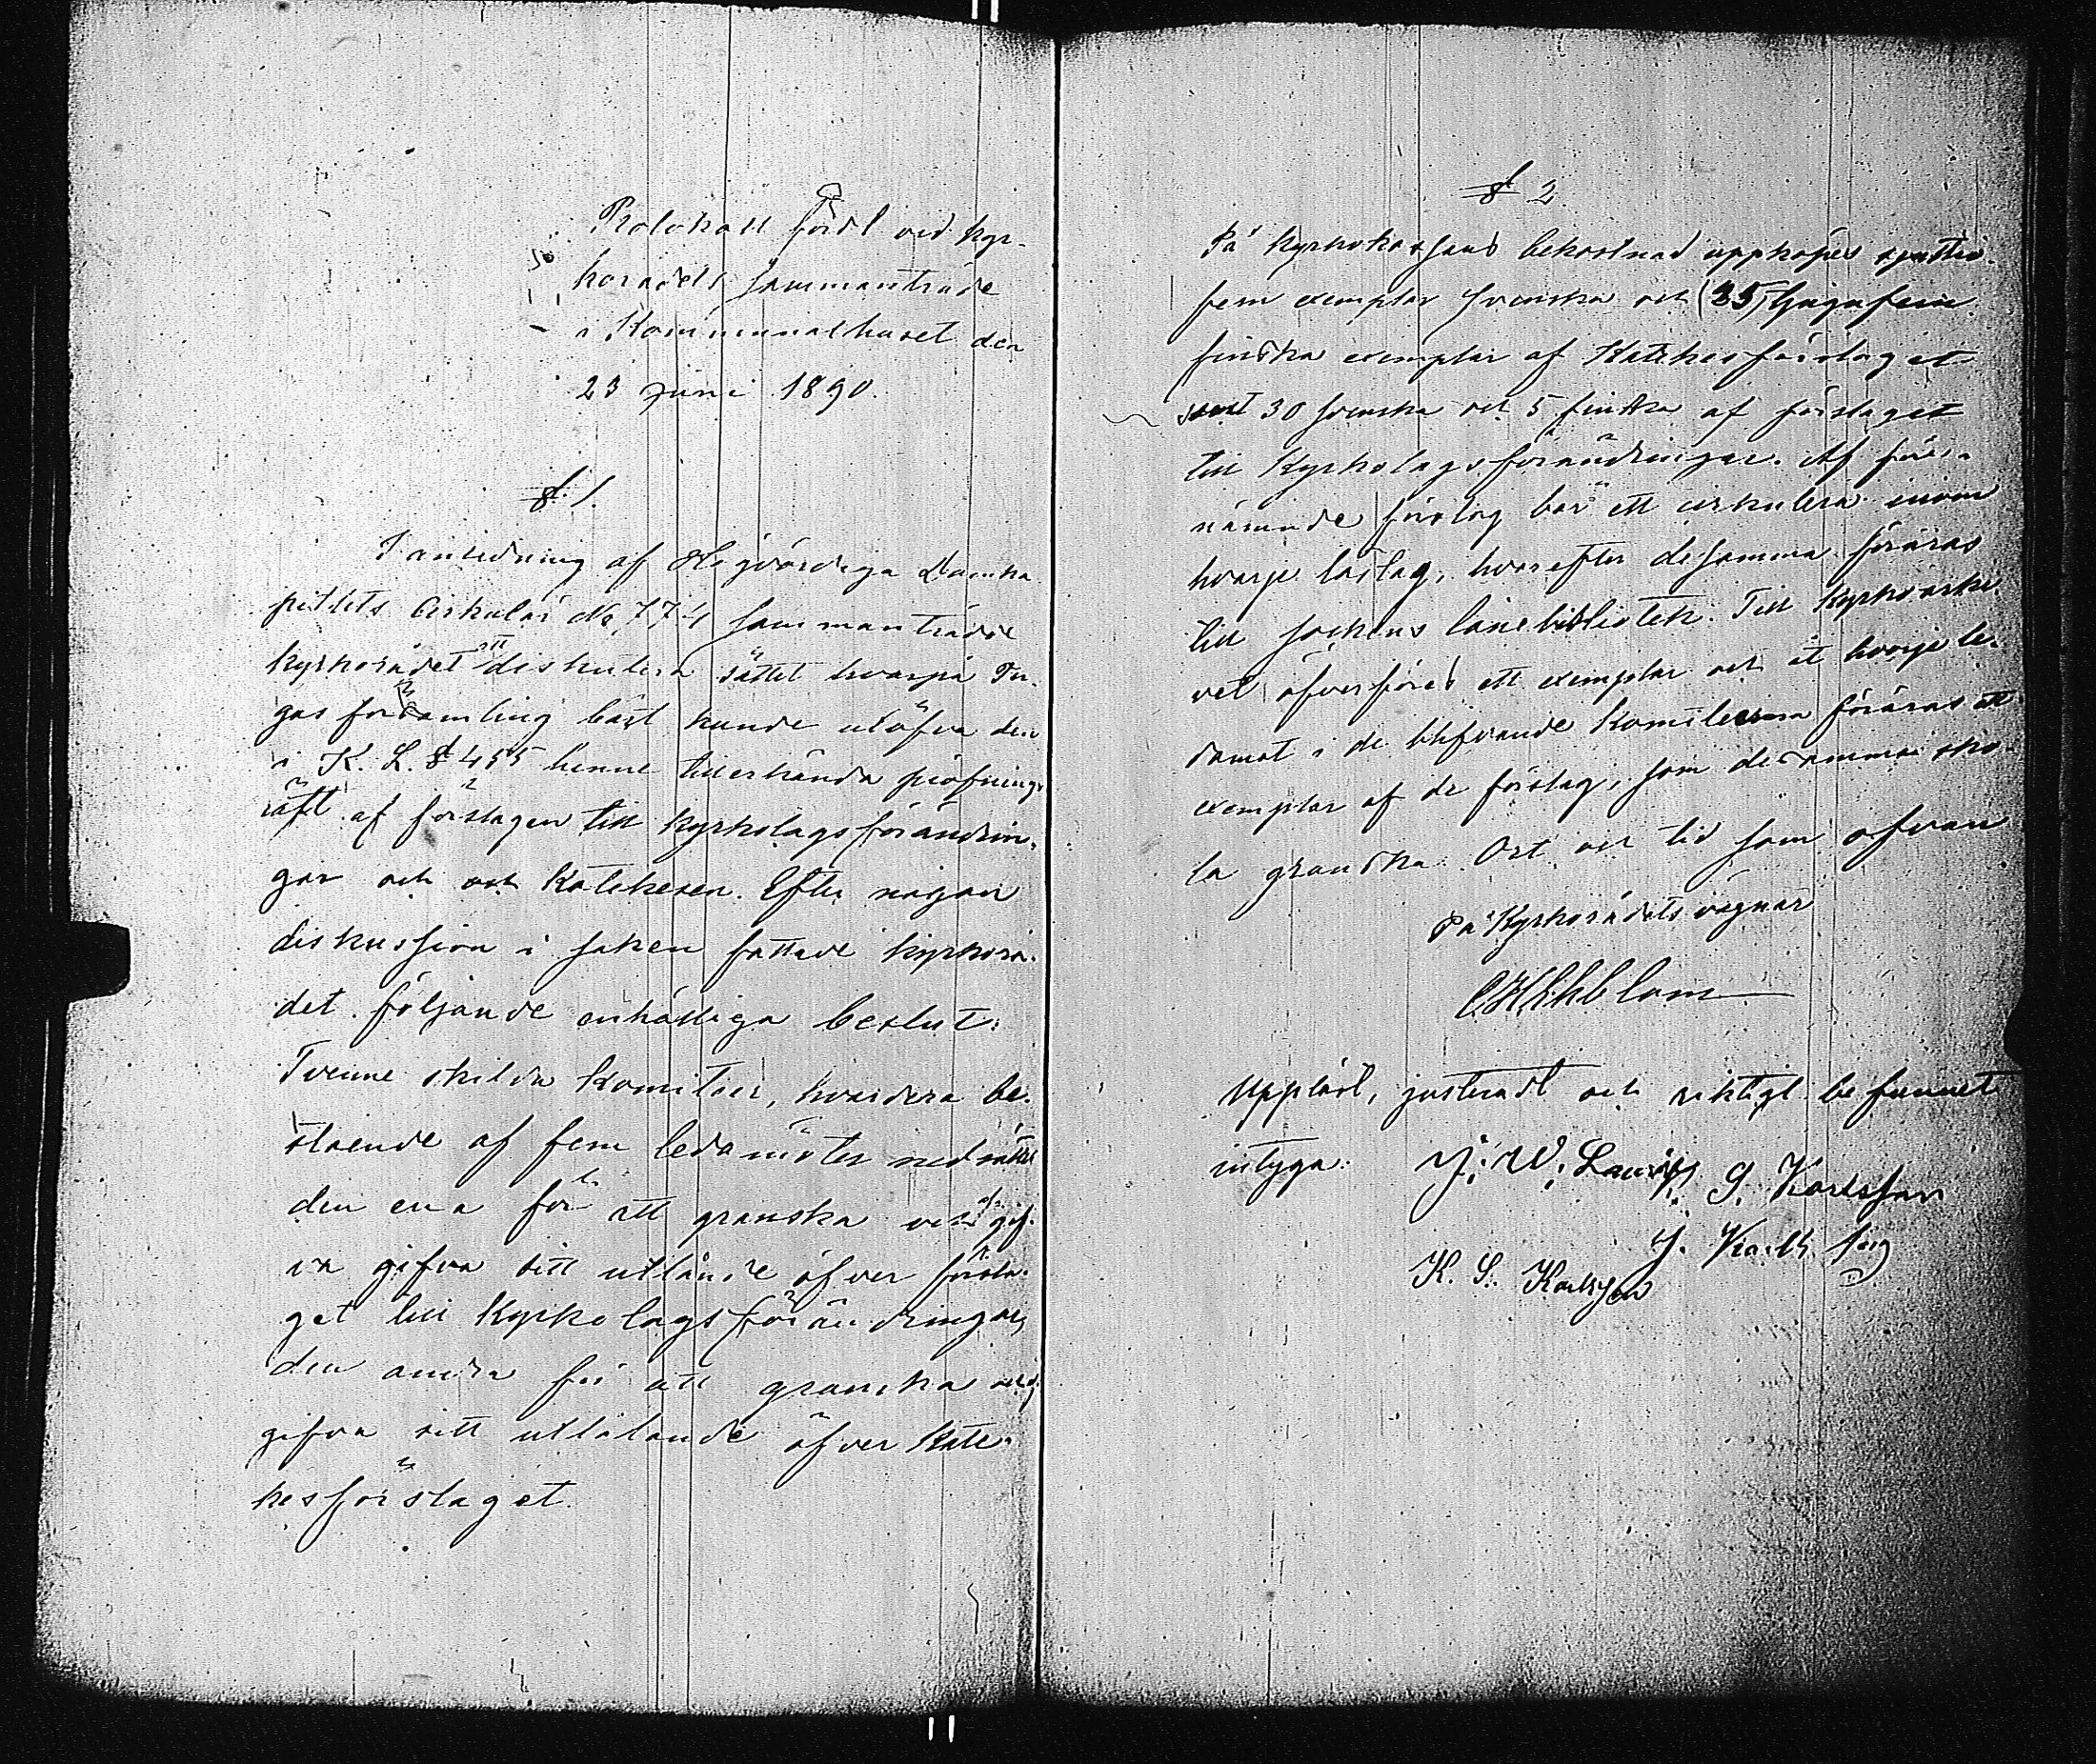 Protokoll fördt vid kyr-
korådets sammanträde
i Kommunalhuset den
23 juni 1890.
§ 1.
I anledning af Högvördiga Domka
pitlets Cirkulär No 774 sammanträdde
kyrkorådet att diskutera sättet hvarpå In-
gås församling bäst kunde utöfva den
i K. L. § 455 henne tillerkända pröfnings
rätt af förslagen till kyrkolagsförändrin-
gar och och Katekesen. Efter någon
diskussion i saken fattade kyrkorå-
det följande enhälliga beslut:
Tvenne skilda komiteer, hvardera be-
stående af fem ledamöter nedsattes
den ena för att granska och
gifva sitt utlånde öfver försla-
get till Kyrkolagsförändringar,
den andra för att granska och
gifva sitt utlåtande öfver Kate-
kesförslaget.
§ 2
På kyrkokassans bekostnad uppköpes sjuttio-
fem exemplar svenska och (25) tjugufem
finska exemplar af Katekesförslaget
samt 30 svenska och 5 finska af förslaget
till Kyrkolagsförändringar. Af förr-
nämnde förslag bör ett cirkulera inom
hvarje läslag, hvarefter desamma föräras
till sockens lånebibliotek. Till Kyrkoarki-
vet öfverföres ett exemplar och åt hvarje le-
damot i de blifvande komiteerna föräras ett
exemplar af de förslag, som desamma sko-
la granska. Ort och tid som ofvan
På Kyrkorådets vägnar
Uppläst, justeradt och riktigt befunnet
intyga: J. W. G. Karlsson
K. S. Karlsson